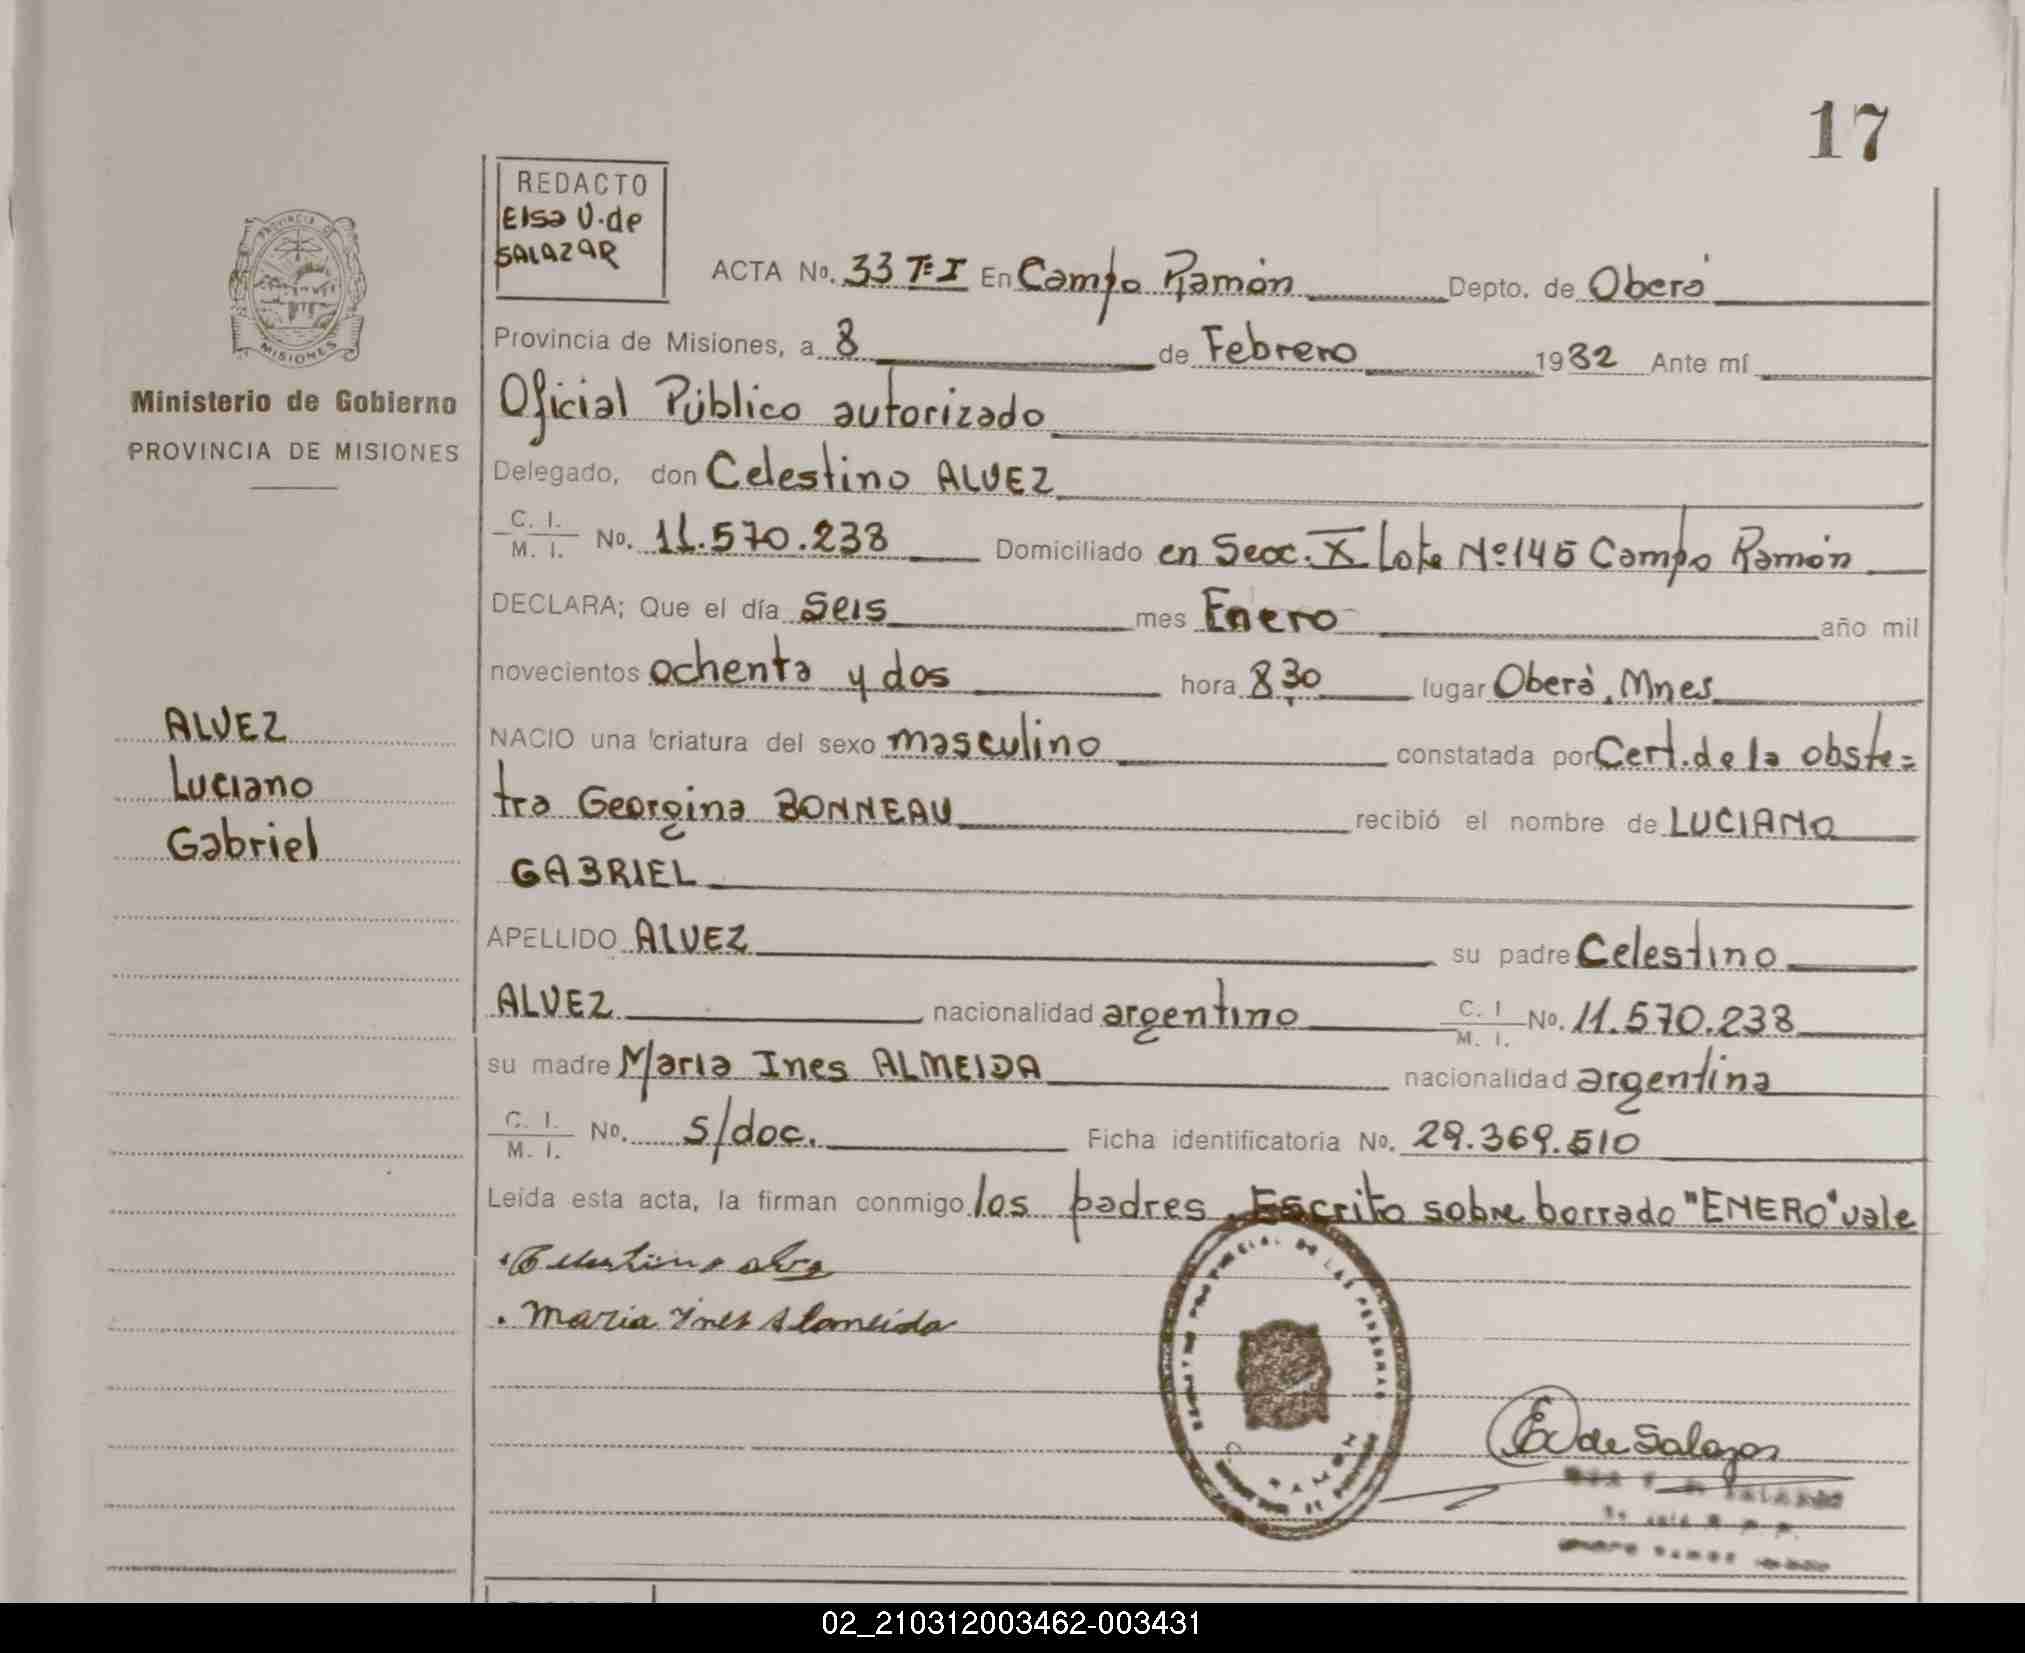 17
REDACTO
Elsa V. de
SALAZAR
PROVINCIA DE
MISIONES
Ministerio de Gobierno
PROVINCIA DE MISIONES
ACTA No. 33 Tº I En Campo Ramón Depto. de Oberá
Provincia de Misiones, a 8 de Febrero 1982 Ante mí
Oficial Público autorizado
Delegado, don Celestino ALVEZ
C. I. / M. I. No. 11.570.238 Domiciliado en Secc. X Lote Nº 145 Campo Ramón
DECLARA; Que el día Seis mes Enero año mil
novecientos ochenta y dos hora 8,30 lugar Oberá, Mnes
NACIO una criatura del sexo masculino constatada por Cert. de la obste=
tra Georgina BONNEAU recibió el nombre de LUCIANO
GABRIEL
APELLIDO ALVEZ su padre Celestino
ALVEZ nacionalidad argentino C. I / M. I. No. 11.570.238
su madre Maria Ines ALMEIDA nacionalidad argentina
C. I. / M. I. No. s/doc. Ficha identificatoria No. 29.369.510
Leída esta acta, la firman conmigo los padres. Escrito sobre borrado "ENERO" vale
ALVEZ
Luciano
Gabriel
Maria Ines Almeida
E V de Salazar
02_210312003462-003431